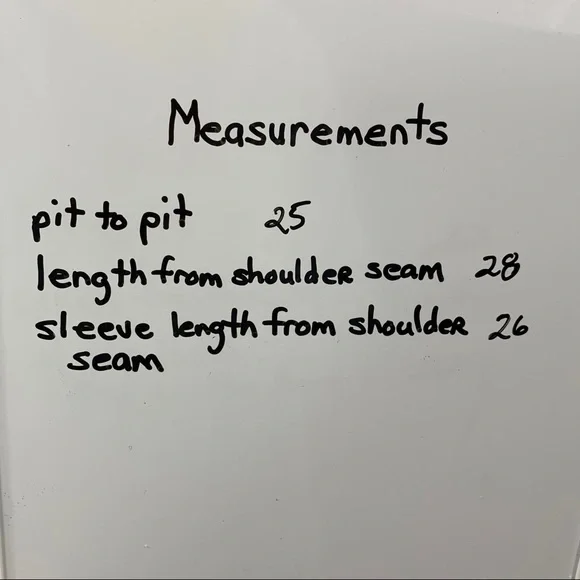 Measurements
pit to pit 25
length from shoulder seam 28
sleeve length from shoulder 26
seam